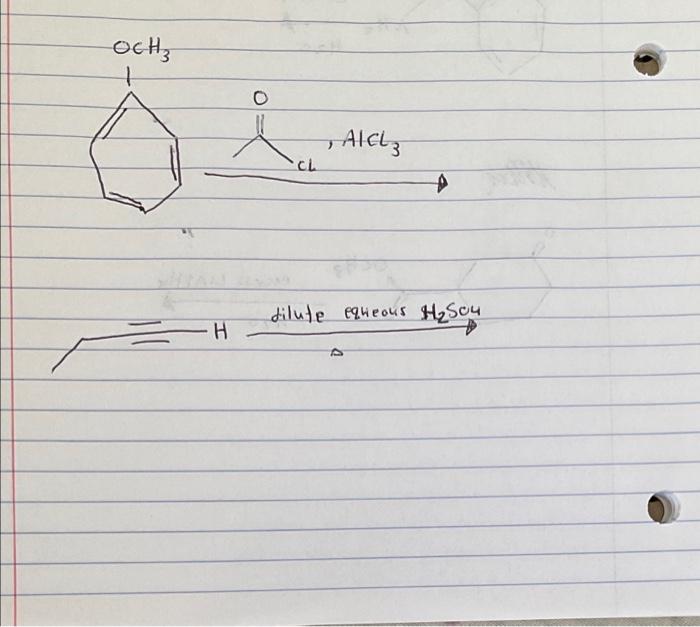 OCH3
O
, AlCl3
Cl
H
dilute equeous H2SO4
Δ